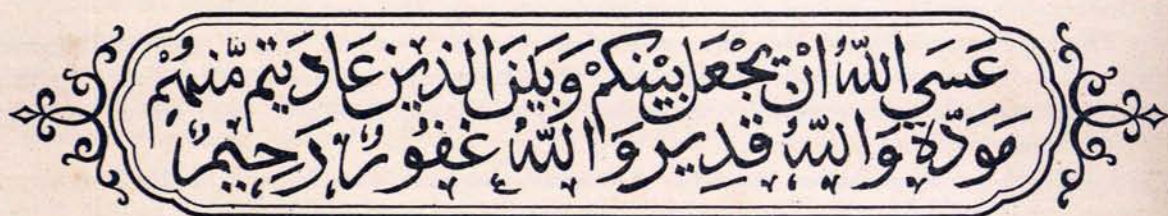 عَسَى اللّٰهُ اَنْ يَجْعَلَ بَيْنَكُمْ وَبَيْنَ الَّذِيْنَ عَادَيْتُمْ مِّنْهُمْ
مَوَدَّةً وَاللّٰهُ قَدِيرٌ وَاللّٰهُ غَفُورٌ رَحِيمٌ